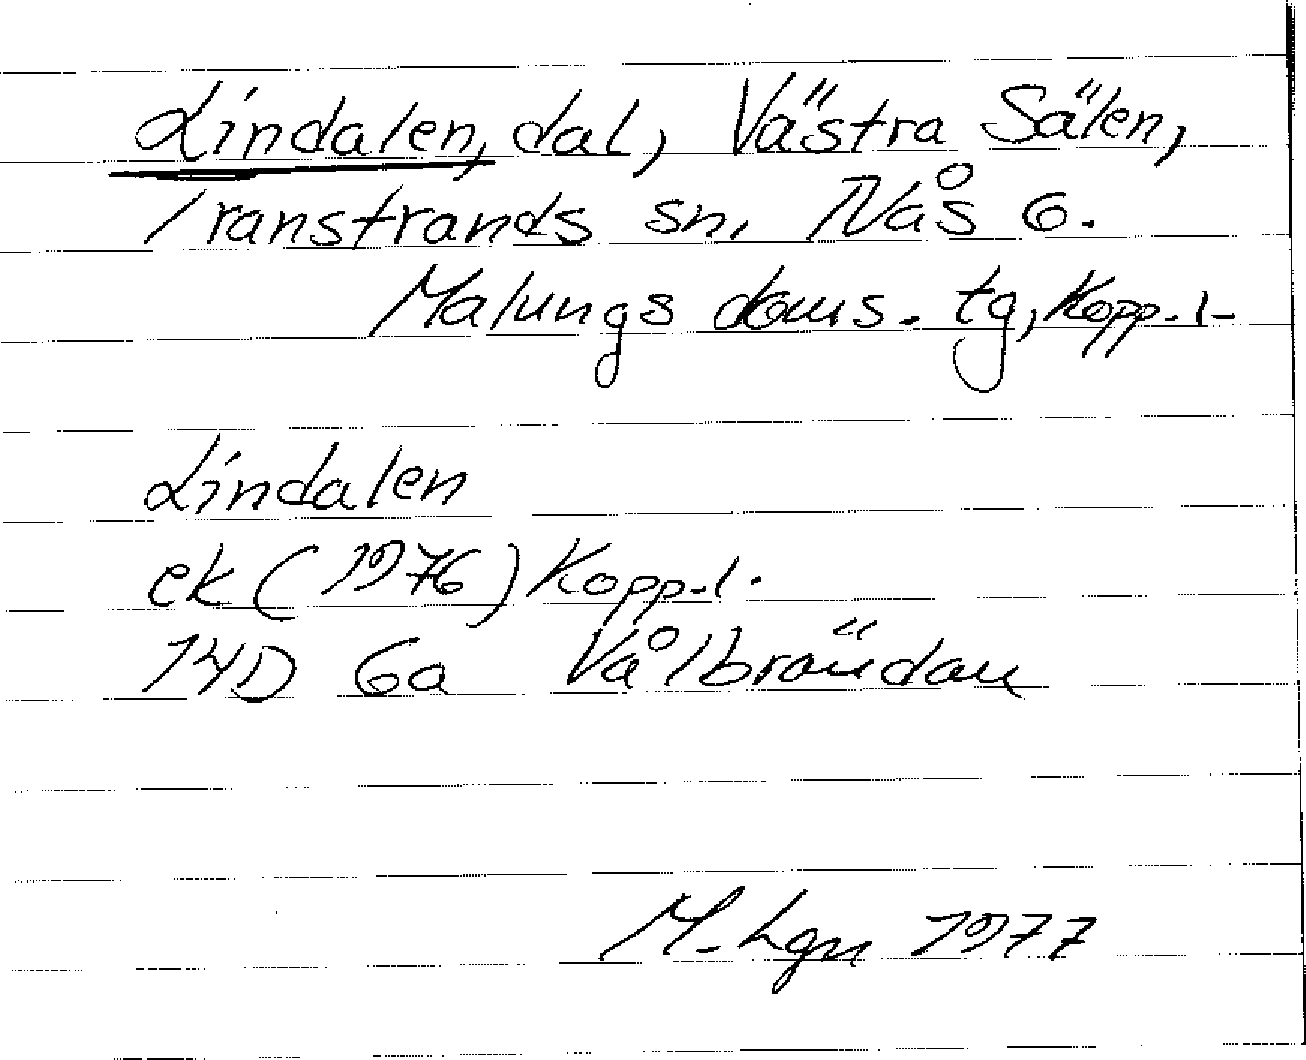 Lindalen, dal, Västra Sälen,
Transtrands sn, Nås 6.
Malungs doms. tg, Kopp. l-
Lindalen
ek (1976) Kopp.l.
14D 6a Vålbrändan
M. Lgn 1977